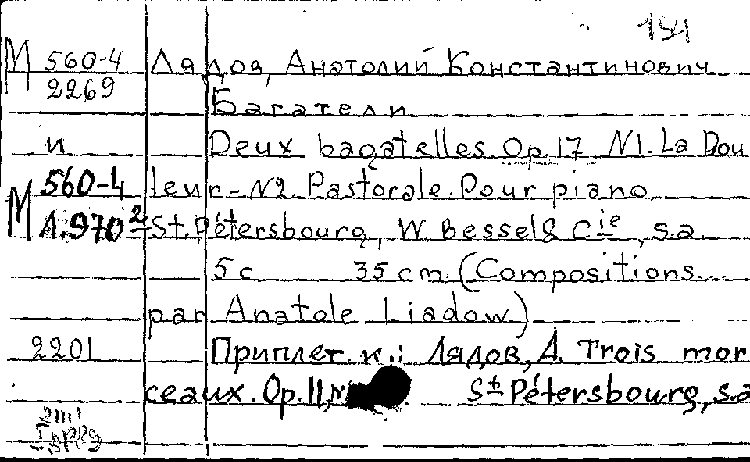 181
М 560-4 Лядов, Анатолий Константинович
2269
Багатели
и Deux bagatelles Op.17 N1. La Dou
М 560-4 leur - N2 Pastorale. Pour piano
Л.970² St. Pétersbourg, W. Bessel & Cie, s.a.
5 с 35 cm (Compositions
par Anatole Liadow)
2201 Приплет. к.: Лядов, А. Trois mor
ceaux. Op. 11, St Pétersbourg, s.a